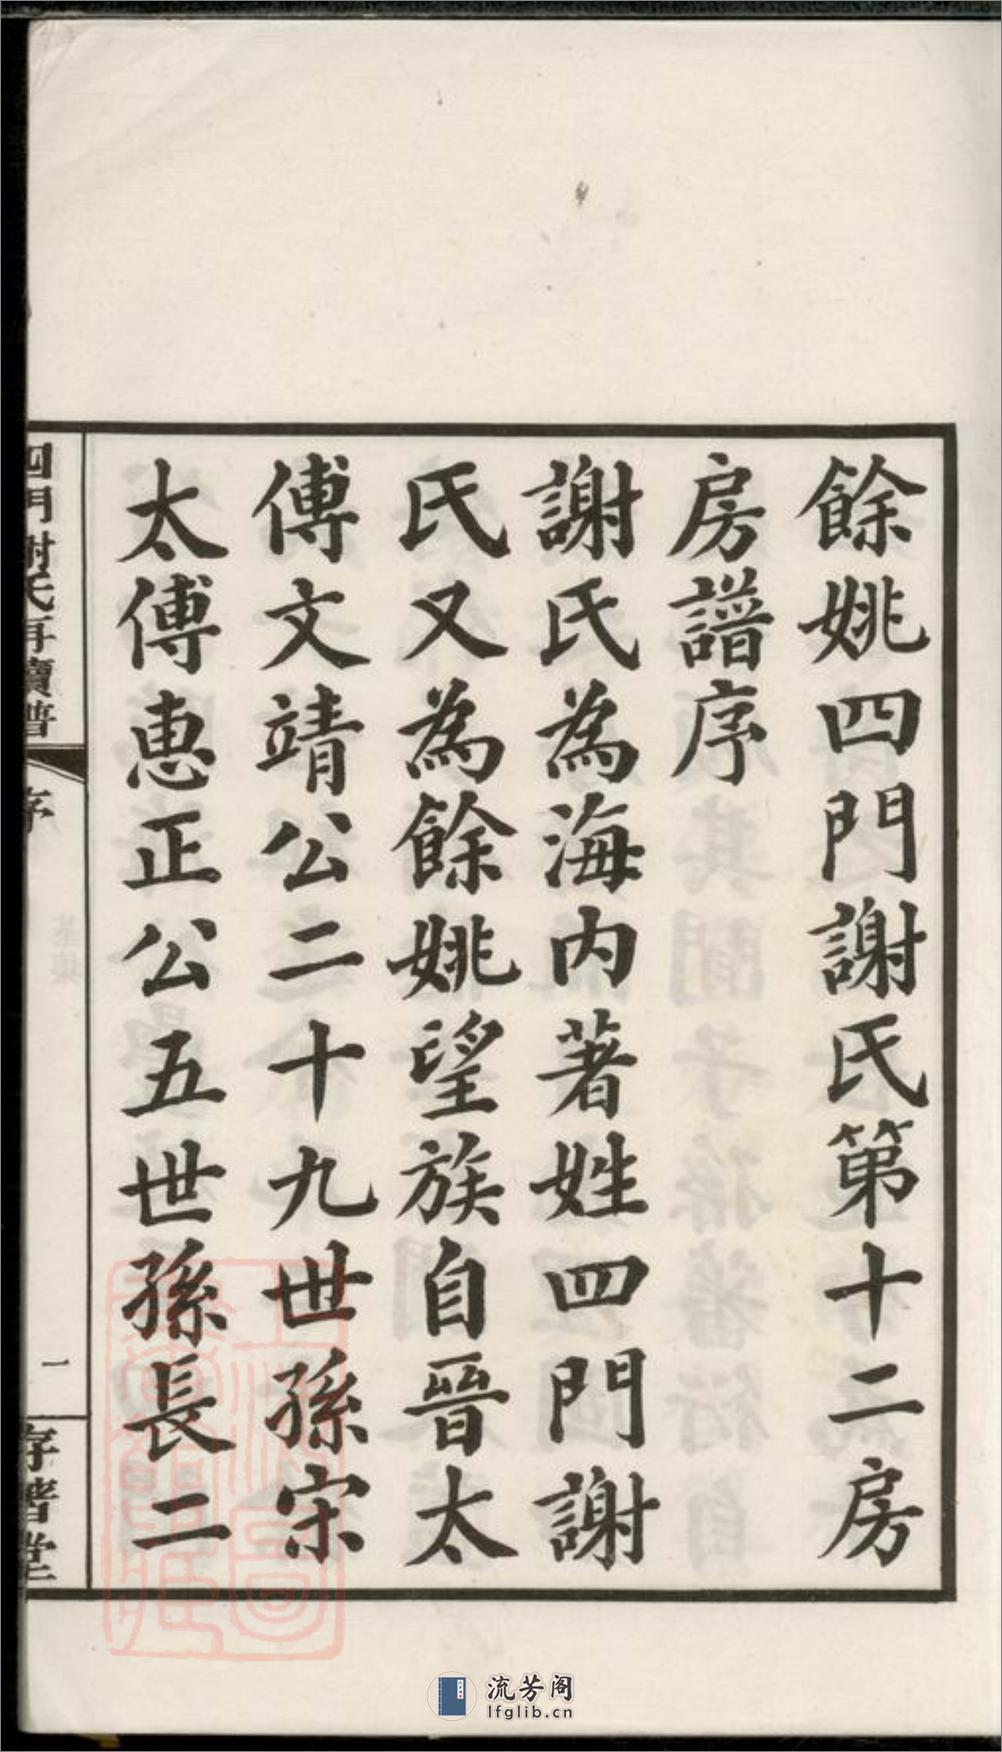 餘姚四門謝氏第十二房
房譜序
謝氏為海內著姓四門謝
氏又為餘姚望族自晉太
傅文靖公二十九世孫宋
太傅惠正公五世孫長二
四門謝氏再續譜
序
一
存著堂
流芳阁
lfglib.cn